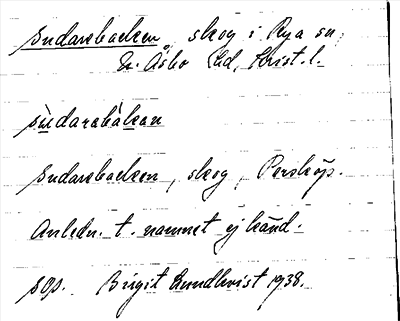 Sudarebacken, skog i Rya sn,
N. Åsbo hd, Krist. l.
sùdarabàkan
Sudarebacken, skog, Perstorp.
Anledn. t. namnet ej känd.
sop. Birgit Lundkvist 1938.